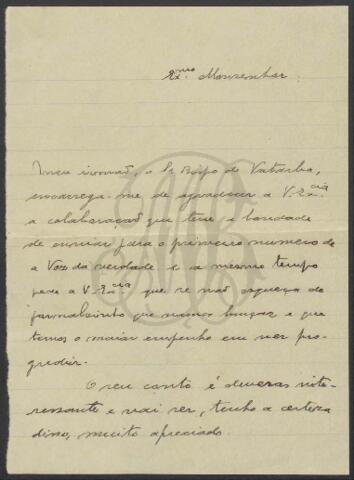 Exmo. Monsenhor
Meu irmão, o Sr. Bispo de Vatarba,
encarrega-me de agradecer a V. Excia
a colaboração que teve a bondade
de enviar para o primeiro numero de
a Voz da verdade e ao mesmo tempo
pede a V. Excia que se não esqueça do
jornalsinho que vamos lançar e que
temos o maior empenho em ver pro-
gredir.
O seu conto é deveras inte-
ressante e vai ser, tenho a certeza
disso, muito apreciado.